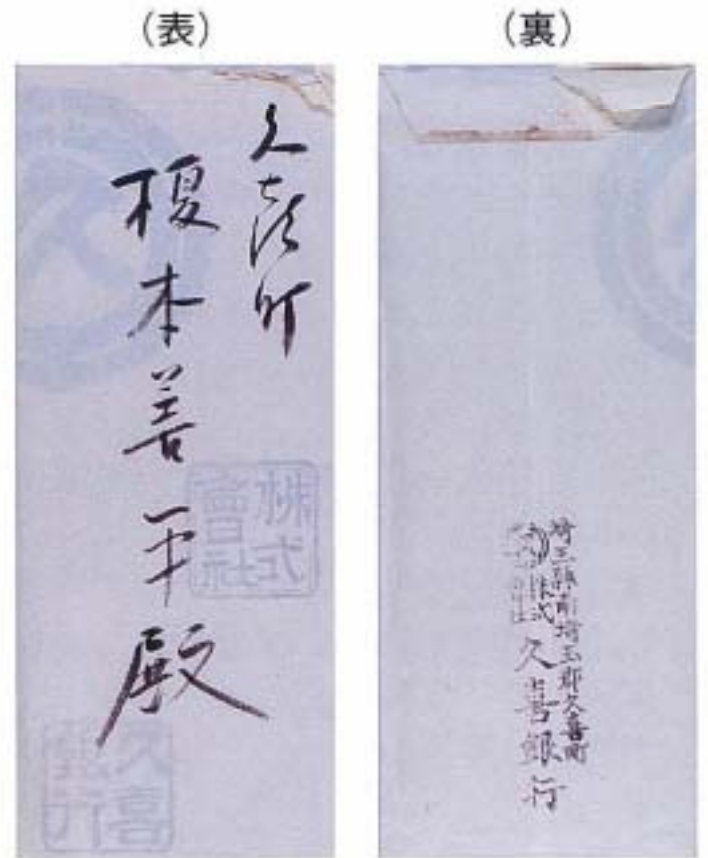 (表)
久喜町
榎本善平殿
株式
會社
久喜
銀行
(裏)
埼玉縣南埼玉郡久喜町
株式
久喜銀行